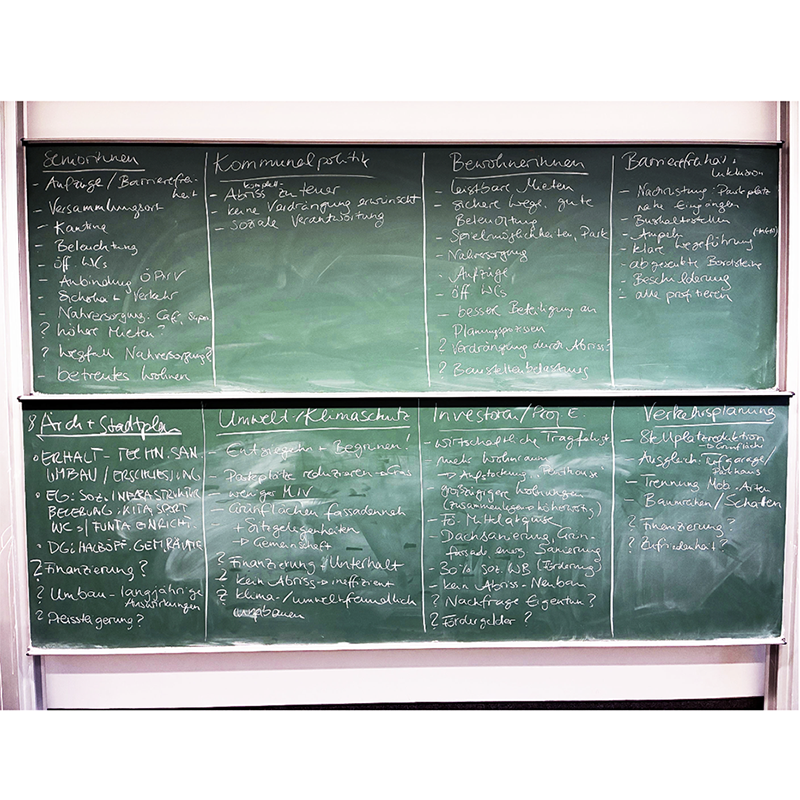 Seniorinnen
- Aufzüge / Barrierefrei-
heit
- Versammlungsort
- Kantine
- Beleuchtung
- öff WCs
- Anbindung ÖPNV
- Sicherheit Verkehr
- Nahversorgung. Café,
? höhere Mieten?
? Wegfall Nahversorgung?
- betreutes Wohnen
Kommunalpolitik
komplett-
- Abriss zu teuer
- keine Verdrängung erwünscht
- soziale Verantwortung
Bewohnerinnen
- leistbare Mieten
- sichere Wege, gute
Beleuchtung
- Spielmöglichkeiten, Park
- Nahversorgung
- Aufzüge
- öff WCs
- bessere Beteiligung an
Planungsprozessen
? Verdrängung durch Abriss?
? Baustellenbelastung
Barrierefreiheit +
Inklusion
- Nachrüstung: Parkplätze
nahe Eingängen
- Bushaltestellen
- Ampeln
- klare Wegeführung
abgesenkte Bordsteine
- Beschilderung
- alle profitieren
Arch + Stadtplan
° ERHALT - TECHN. SAN
UMBAU / ERSCHLIESSUNG
° EG: SOZ. INFRASTRUKTUR
BELEBUNG: KITA, SPORT
WC's /
° DG: HALBÖFF. GEM. RÄUME
? Finanzierung?
? Umbau - langjährige
Auswirkungen
? Preissteigerung?
Umwelt / Klimaschutz
- Entsiegeln + Begrünen!
- Parkplätze reduzieren
- weniger MIV
- Grünflächen fassadennah
+ Sitzgelegenheiten
→ Gemeinschaft
? Finanzierung / Unterhalt
? kein Abriss → ineffizient
? klima-/umweltfreundlich
umbauen
Investoren / Proj E.
- wirtschaftliche Tragfähigk.
- mehr Wohnraum
→ Aufstockung, Penthouse
- großzügigere Wohnungen
(zusammenlegen + höherwertig)
- Fö-Mittelakquise
- Dachsanierung, Grün-
fassade, energ. Sanierung
- 30% soz. WB (Förderung)
- kein Abriss - Neubau
? Nachfrage Eigentum?
? Fördergelder?
Verkehrsplanung
- Stellplatzreduktion
→ Grünfläche
- Ausgleich: Tiefgarage /
Parkhaus
- Trennung Mob.-Arten
- Baumreihen / Schatten
? Finanzierung?
? Zufriedenheit?